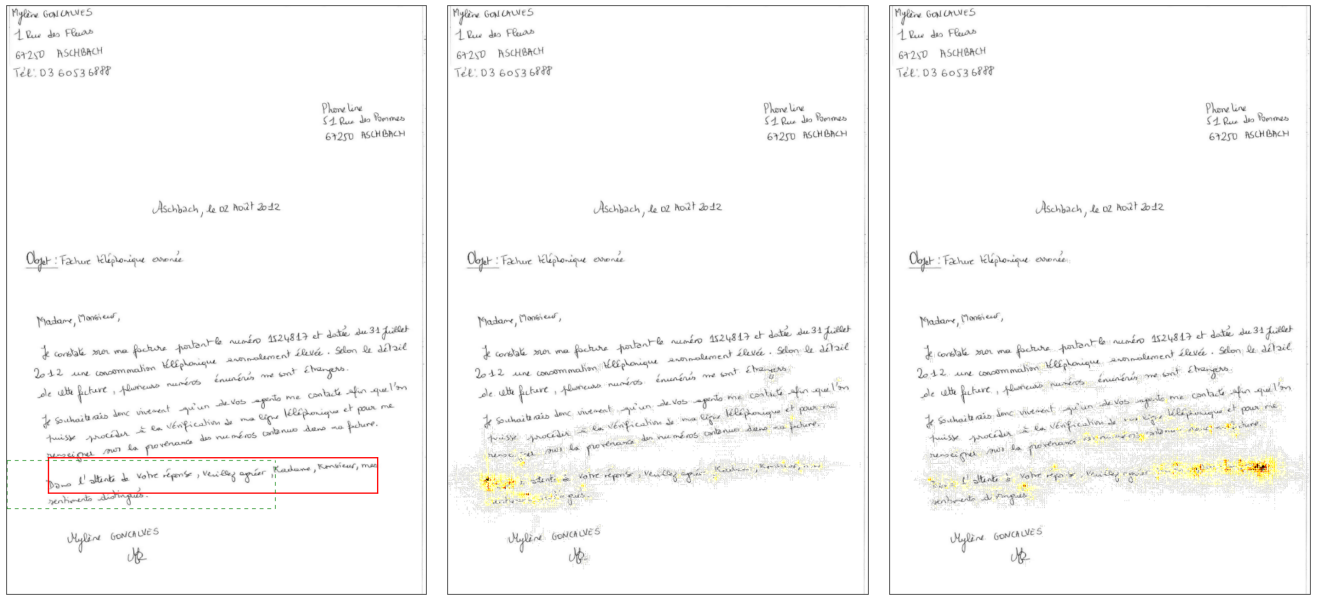 Mylène GONCALVES
1 Rue des Fleurs
67250 ASCHBACH
Tél: 03 60536888
Phoneline
51 Rue des Pommes
67250 ASCHBACH
Aschbach, le 02 Août 2012
Objet : Facture téléphonique erronée
Madame, Monsieur,
Je constate sur ma facture portant le numéro 1S24817 et datée du 31 Juillet
2012 une consommation téléphonique anormalement élevée. Selon le détail
de cette facture, plusieurs numéros énumérés me sont étrangers.
Je souhaiterais donc vivement qu'un de vos agents me contacte afin que l'on
puisse procéder à la vérification de ma ligne téléphonique et pour me
renseigner sur la provenance des numéros contenus dans ma facture.
Dans l'attente de votre réponse, veuillez agréer Madame, Monsieur, mes
sentiments distingués.
Mylène GONCALVES
Mylène GONCALVES
1 Rue des Fleurs
67250 ASCHBACH
Tél: 03 60536888
Phoneline
51 Rue des Pommes
67250 ASCHBACH
Aschbach, le 02 Août 2012
Objet : Facture téléphonique erronée
Madame, Monsieur,
Je constate sur ma facture portant le numéro 1S24817 et datée du 31 Juillet
2012 une consommation téléphonique anormalement élevée. Selon le détail
de cette facture, plusieurs numéros énumérés me sont étrangers.
Je souhaiterais donc vivement qu'un de vos agents me contacte afin que l'on
puisse procéder à la vérification de ma ligne téléphonique et pour me
renseigner sur la provenance des numéros contenus dans ma facture.
Dans l'attente de votre réponse, veuillez agréer Madame, Monsieur,
sentiments distingués.
Mylène GONCALVES
Mylène GONCALVES
1 Rue des Fleurs
67250 ASCHBACH
Tél: 03 60536888
Phoneline
51 Rue des Pommes
67250 ASCHBACH
Aschbach, le 02 Août 2012
Objet : Facture téléphonique erronée
Madame, Monsieur,
Je constate sur ma facture portant le numéro 1S24817 et datée du 31 Juillet
2012 une consommation téléphonique anormalement élevée. Selon le détail
de cette facture, plusieurs numéros énumérés me sont étrangers.
Je souhaiterais donc vivement qu'un de vos agents me contacte afin que l'on
puisse procéder à la vérification de ma ligne téléphonique et pour me
renseigner sur la provenance des numéros contenus dans ma facture.
Dans l'attente de votre réponse, veuillez agréer
sentiments distingués.
Mylène GONCALVES